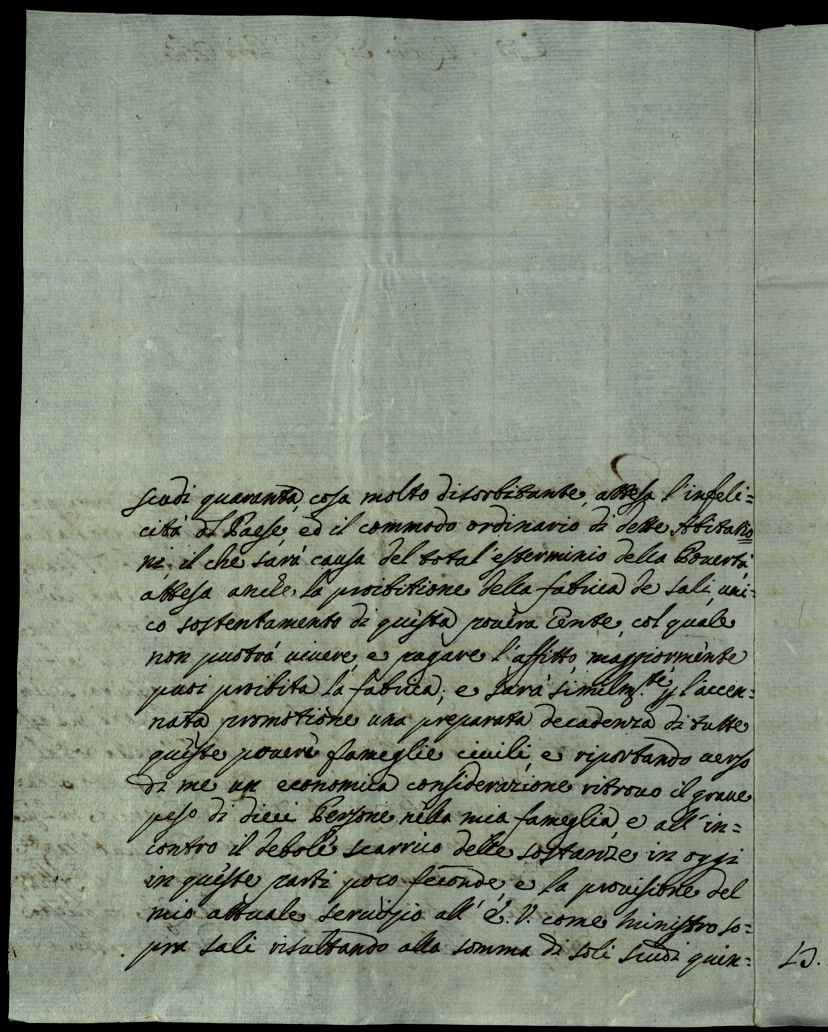 scudi quaranta, cosa molto disorbitante, attesa l'infeli=
cità del Paese, ed il commodo ordinario di dette Abitatio
ni il che sarà causa del total'esterminio della Povertà
attesa anche la proibitione della fabrica de sali, uni=
co sostentamento di questa povera Gente, col quale
non puotrà vivere, e pagare l'affitto, maggiormente
puoi proibita la fabrica; e sarà similm.te p l'accen=
nata promotione una preparata decadenza di tutte
queste povere fameglie civili, e riportando verso
di me un economica considerazione ritrovo il grave
peso di dieci Persone nella mia fameglia, e all'in=
contro il debole scarrico delle sostanze in oggi
in queste parti poco feconde, e la provisione del
mio attuale servizio all'E.V. come Ministro so=
pra sali risultando alla somma di soli scudi quin=